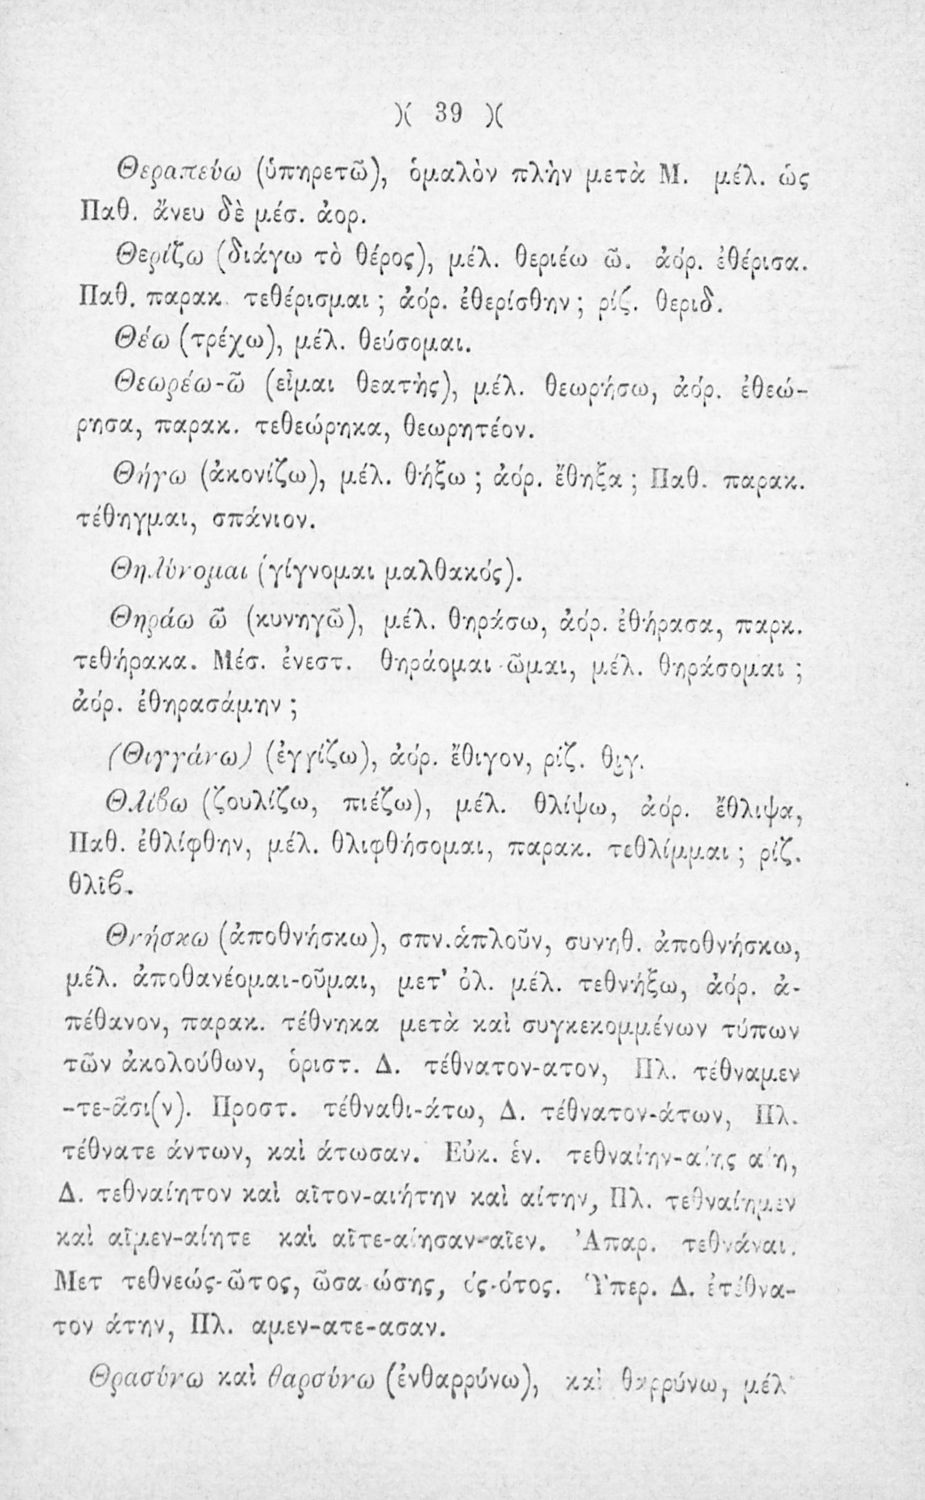 )( 39 )(
Θεραπεύω (ὑπηρετῶ), ὁμαλὸν πλὴν μετὰ Μ. μέλ. ὡς
Παθ. ἄνευ δὲ μέσ. ἀορ.
Θερίζω (διάγω τὸ θέρος), μέλ. θεριέω ῶ. ἀόρ. ἐθέρισα.
Παθ. παρακ. τεθέρισμαι ; ἀόρ. ἐθερίσθην ; ρίζ. θεριδ.
Θέω (τρέχω), μέλ. θεύσομαι.
Θεωρέω-ῶ (εἶμαι θεατὴς), μέλ. θεωρήσω, ἀόρ. ἐθεώ-
ρησα, παρακ. τεθεώρηκα, θεωρητέον.
Θήγω (ἀκονίζω), μέλ. θήξω ; ἀόρ. ἔθηξα ; Παθ. παρακ.
τέθηγμαι, σπάνιον.
Θηλύνομαι (γίγνομαι μαλθακός).
Θηράω ῶ (κυνηγῶ), μέλ. θηράσω, ἀόρ. ἐθήρασα, παρκ.
τεθήρακα. Μέσ. ἐνεστ. θηράομαι-ῶμαι, μέλ. θηράσομαι ;
ἀόρ. ἐθηρασάμην ;
(Θιγγάνω) (ἐγγίζω), ἀόρ. ἔθιγον, ρίζ. θιγ.
Θλίβω (ζουλίζω, πιέζω), μέλ. θλίψω, ἀόρ. ἔθλιψα,
Παθ. ἐθλίφθην, μέλ. θλιφθήσομαι, παρακ. τεθλίμμαι ; ρίζ.
θλῐβ.
Θνήσκω (ἀποθνήσκω), σπν.ἁπλοῦν, συνηθ. ἀποθνήσκω,
μέλ. ἀποθανέομαι-οῦμαι, μετ' ὀλ. μέλ. τεθνήξω, ἀόρ. ἀ-
πέθανον, παρακ. τέθνηκα μετὰ καὶ συγκεκομμένων τύπων
τῶν ἀκολούθων, ὁριστ. Δ. τέθνατον-ατον, Πλ. τέθναμεν
-τε-ᾶσι(ν). Προστ. τέθναθι-άτω, Δ. τέθνατον-άτων, Πλ.
τέθνατε άντων, καὶ άτωσαν. Εὐκ. ἑν. τεθναίην-αίης αίη,
Δ. τεθναίητον καὶ αῖτον-αιήτην καὶ αίτην, Πλ. τεθναίημεν
καὶ αῖμεν-αίητε καὶ αῖτε-αίησαν-αῖεν. Ἀπαρ. τεθνάναι.
Μετ τεθνεώς-ῶτος, ῶσα ώσης, ός-ότος. Ὑπερ. Δ. ἐτέθνα-
τον άτην, Πλ. αμεν-ατε-ασαν.
Θρασύνω καὶ θαρσύνω (ἐνθαρρύνω), καὶ θαρρύνω, μέλ